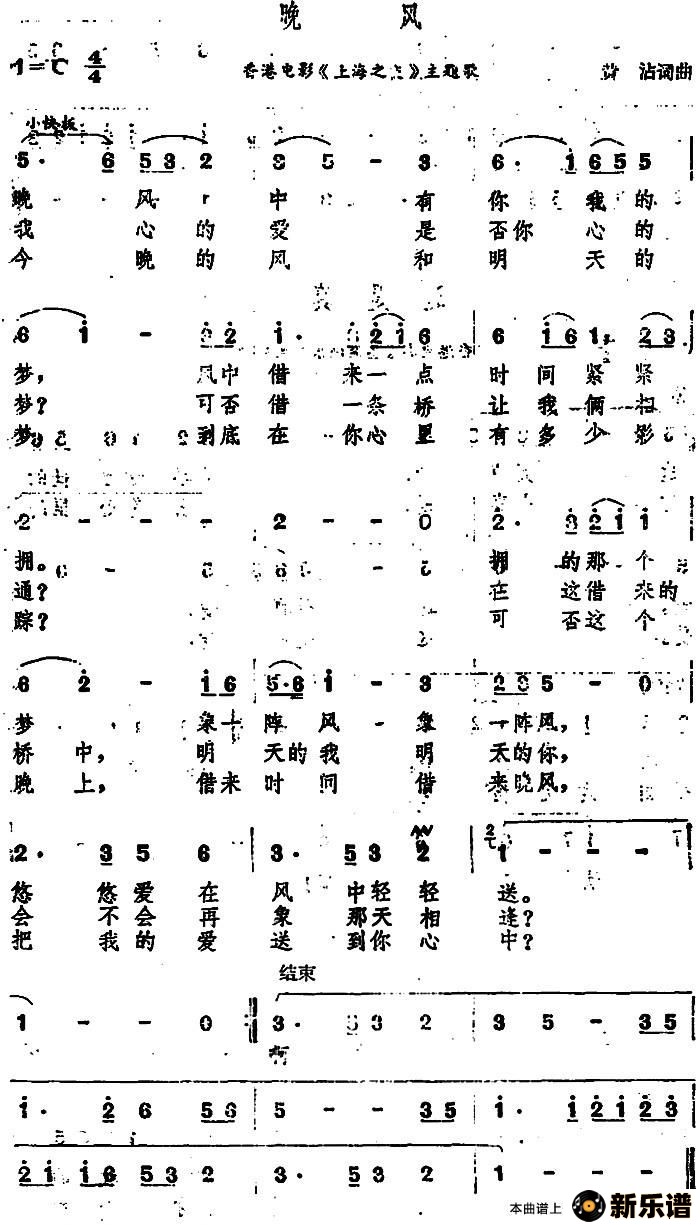 晚 风
1=C 4/4
香港电影《上海之 》主题歌 沾词曲
小快板
5· 6 5 3 2 | 3 5 - 3 | 6· i 6 5 5 |
晚 风 中 有 你 我 的
我 心 的 爱 是 否 你 心 的
今 晚 的 风 和 明 天 的
梦， 风 中 借 来 一 点 时 间 紧 紧
梦？ 可 否 借 一 条 桥 让 我 俩 相
梦 到 底 在 你 心 里 有 多 少 影
2 - - - | 2 - - 0 | 2· 3 2 i i |
拥。 拥 的 那 个
通？ 在 这 借 来 的
踪？ 可 否 这 个
6 2 - i 6 | 5·6 i - 3 | 2 3 5 - 0 |
梦 象 一 阵 风 象 一 阵 风，
桥 中， 明 天 的 我 明 天 的 你，
晚 上， 借 来 时 间 借 来 晚 风，
2· 3 5 6 | 3· 5 3 2 | 1 - - - |
悠 悠 爱 在 风 中 轻 轻 送。
会 不 会 再 象 那 天 相 逢？
把 我 的 爱 送 到 你 心 中？
结束
1 - - 0 :‖ 3· 5 3 2 | 3 5 - 3 5 |
啊
i· 2 6 5 6 | 5 - - 3 5 | i· i 2 i 2 3 |
2 i i 6 5 3 2 | 3· 5 3 2 | 1 - - - ‖
本曲谱上 新乐谱